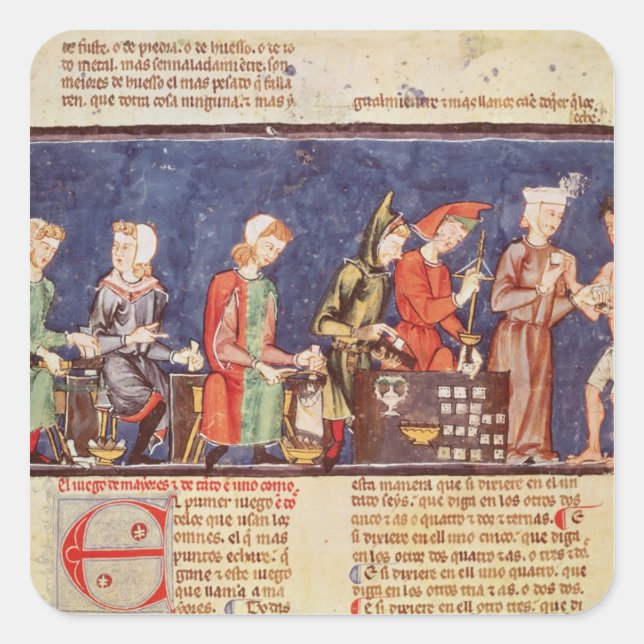 de fuste. o de piedra. o de huesso. o de to
do metal. mas sennaladamientre. son
meiores de huesso el mas pesado q̃ falla
ren. que dotra cosa ninguna. & mas y
gualmientre & mas llanos cae doq̃er q̃ los
eche.
El iuego de mayores & de tanto en uno como
El primer iuego es
delos que usan los
omnes. el q̃ mas
puntos echare. q̃
gane & este iuego
que llaman a ma
yores. Todas
esta manera que si dixiere en el un
dado seys. que diga en los otros dos
cinco & as o quatro & dos & ternas. E
si dixiere en ell uno cinco. que diga
en los otros dos quatro & as. o tres & dos
E si dixiere en ell uno quatro. que
diga en los otros tria & as. o dos & dos.
E si dixiere en ell otro tres. que di